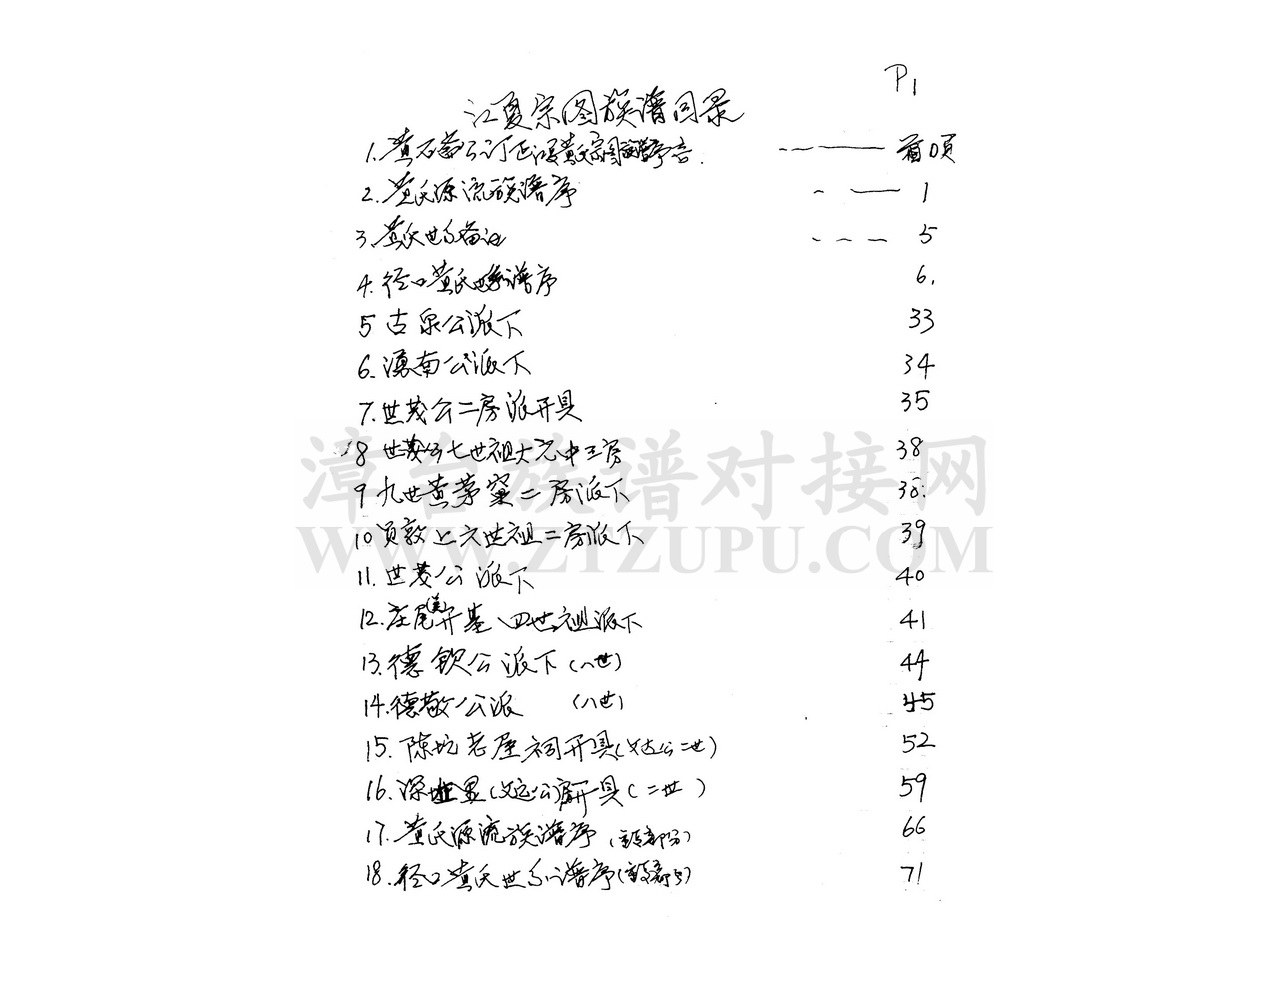 P1
江夏宗图族谱目录
1.黄石斋公订正江夏黄氏宗图族谱序言. 首页
2.黄氏源流族谱序 1
3.黄氏世系备注 5
4.径口黄氏世系谱序 6.
5古泉公派下 33
6.湧南公派下 34
7.世茂公二房派开具 35
8世茂公七世祖大元中三房 38
9九世黄茅窠二房派下 38.
10贞敦上六世祖二房派下 39
11.世茂公派下 40
12.庄尾开基、四世祖派下 41
13.德钦公派下(八世) 44
14.德敬公派 (八世) 45
15.陈坑老屋祠开具(文达公二世) 52
16.深坵里(文远公)房开具(二世) 59
17.黄氏源流族谱序 66
18.径口黄氏世系谱序 71
漳台族谱对接网
WWW.ZTZUPU.COM